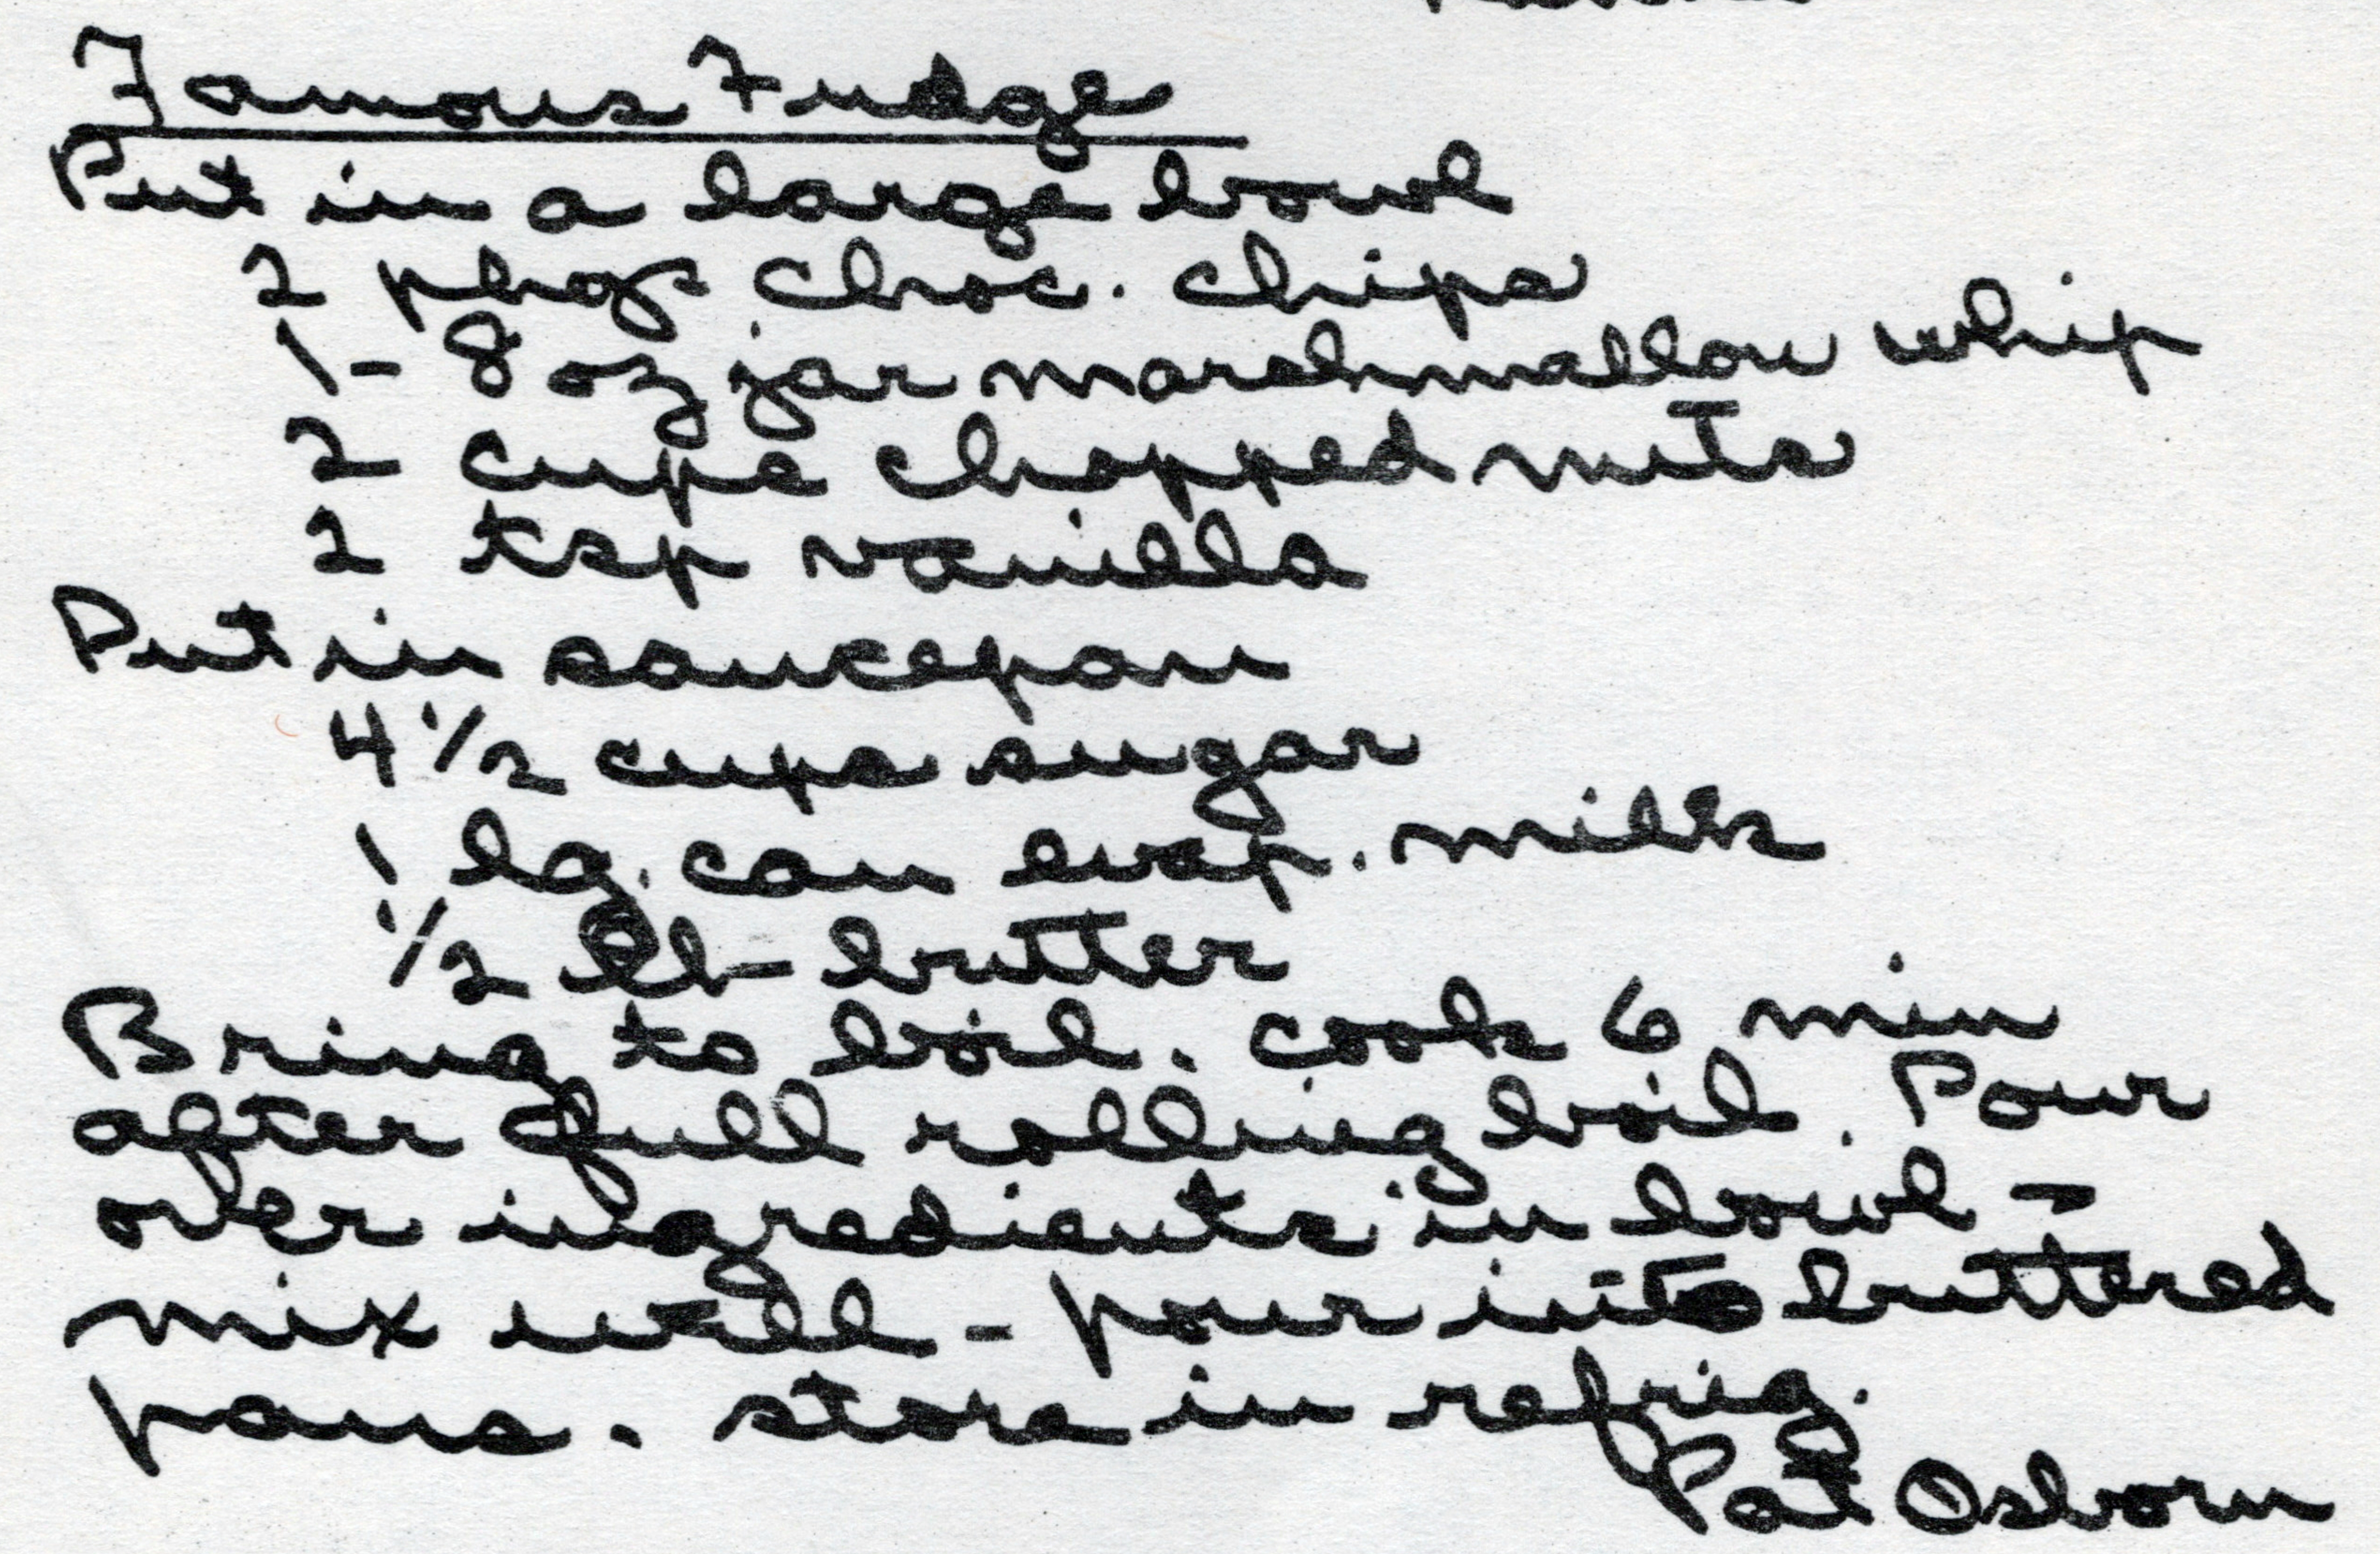 Famous Fudge
Put in a large bowl
2 pkgs choc. chips
1- 8 oz jar marshmallow whip
2 cups chopped nuts
2 tsp vanilla
Put in saucepan
4 1/2 cups sugar
1 lg. can evap. milk
1/2 lb butter
Bring to boil. cook 6 min
after full rolling boil. Pour
over ingredients in bowl -
mix well - pour into buttered
pans. store in refrig.
Pat Osborn